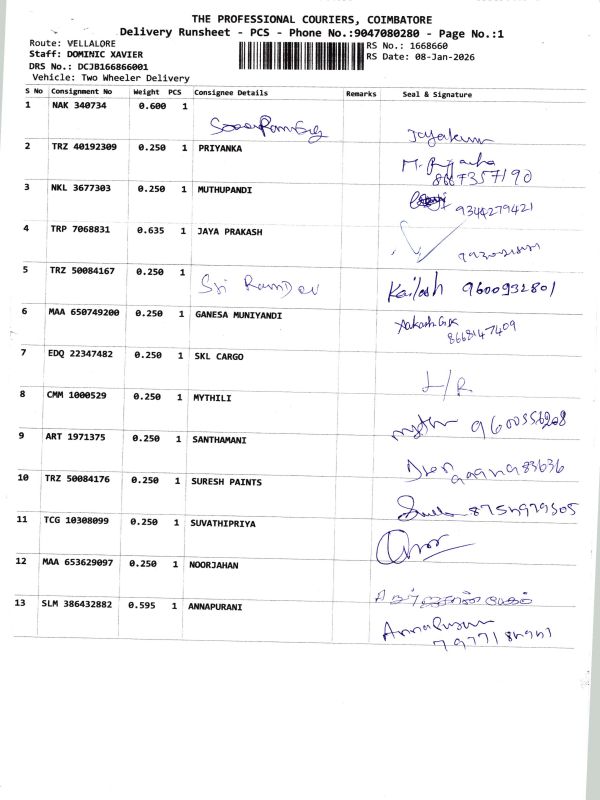 THE PROFESSIONAL COURIERS, COIMBATORE
Delivery Runsheet - PCS - Phone No.:9047080280 - Page No.:1
Route: VELLALORE
RS No.: 1668660
Staff: DOMINIC XAVIER
RS Date: 08-Jan-2026
DRS No.: DCJB166866001
Vehicle: Two Wheeler Delivery
S No Consignment No Weight PCS Consignee Details Remarks Seal & Signature
1 NAK 340734 0.600 1
Jayakum
2 TRZ 40192309 0.250 1 PRIYANKA
8667357190
3 NKL 3677303 0.250 1 MUTHUPANDI
9344279421
4 TRP 7068831 0.635 1 JAYA PRAKASH
5 TRZ 50084167 0.250 1
Sri RamDev Kailash 9600932801
6 MAA 650749200 0.250 1 GANESA MUNIYANDI
8668147409
7 EDQ 22347482 0.250 1 SKL CARGO
L/R
8 CMM 1000529 0.250 1 MYTHILI
9600556208
9 ART 1971375 0.250 1 SANTHAMANI
10 TRZ 50084176 0.250 1 SURESH PAINTS
8754979505
11 TCG 10308099 0.250 1 SUVATHIPRIYA
12 MAA 653629097 0.250 1 NOORJAHAN
13 SLM 386432882 0.595 1 ANNAPURANI